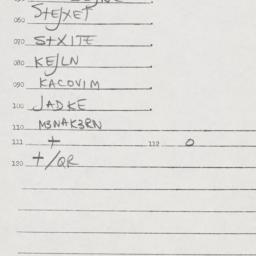 060 STEJXET
070 STXITE
080 KEJLN
090 KACOVIM
100 JADKE
110 M3NAK3RN
111 + 112 0
120 +/QR